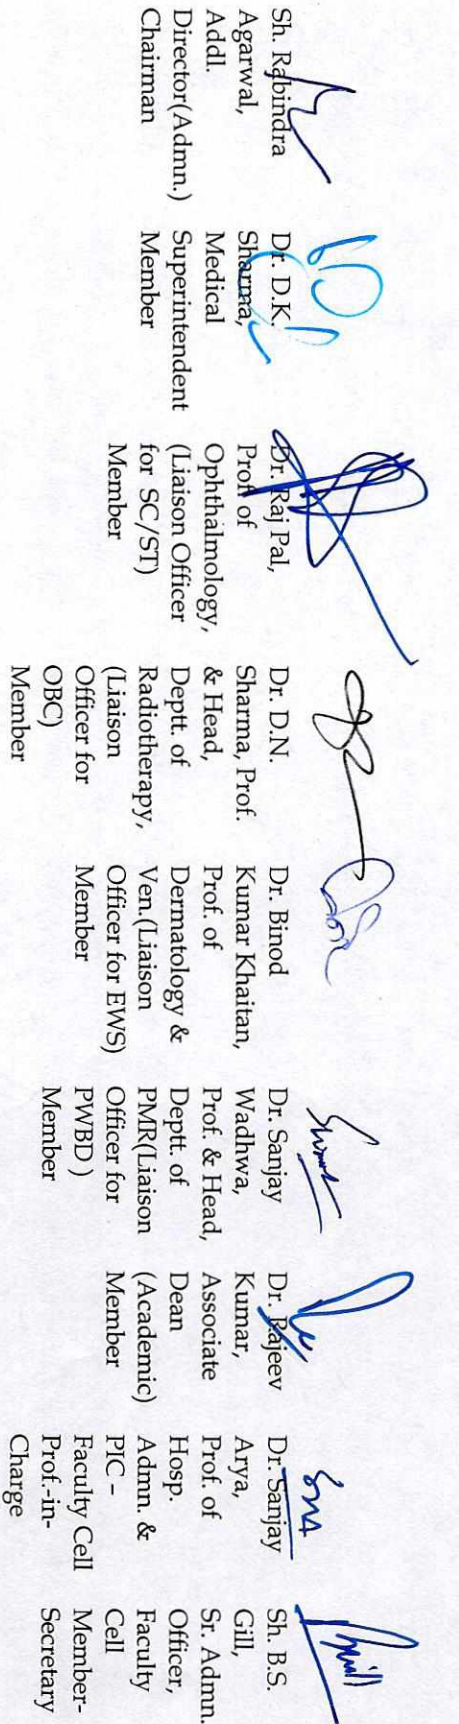 Sh. Rabindra
Agarwal,
Addl.
Director(Admn.)
Chairman
Dr. D.K.
Sharma,
Medical
Superintendent
Member
Dr. Raj Pal,
Prof. of
Ophthalmology,
(Liaison Officer
for SC/ST)
Member
Dr. D.N.
Sharma, Prof.
& Head,
Deptt. of
Radiotherapy,
(Liaison
Officer for
OBC)
Member
Dr. Binod
Kumar Khaitan,
Prof. of
Dermatology &
Ven.(Liaison
Officer for EWS)
Member
Dr. Sanjay
Wadhwa,
Prof. & Head,
Deptt. of
PMR(Liaison
Officer for
PWBD )
Member
Dr. Rajeev
Kumar,
Associate
Dean
(Academic)
Member
Dr. Sanjay
Arya,
Prof. of
Hosp.
Admn. &
PIC –
Faculty Cell
Prof.-in-
Charge
Sh. B.S.
Gill,
Sr. Admn.
Officer,
Faculty
Cell
Member-
Secretary